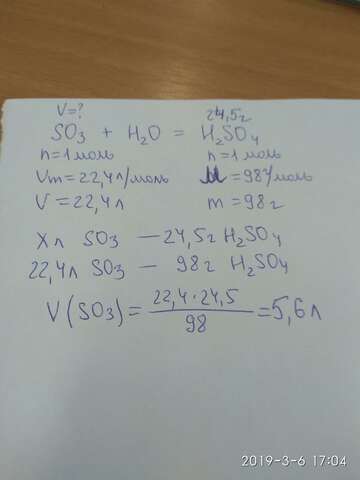 V=? 24,5г
SO₃ + H₂O = H₂SO₄
n=1моль n=1моль
Vm=22,4л/моль M=98г/моль
V=22,4л m=98г
Xл SO₃ — 24,5г H₂SO₄
22,4л SO₃ — 98г H₂SO₄
V(SO₃)= 22,4·24,5 / 98 =5,6л
2019-3-6 17:04